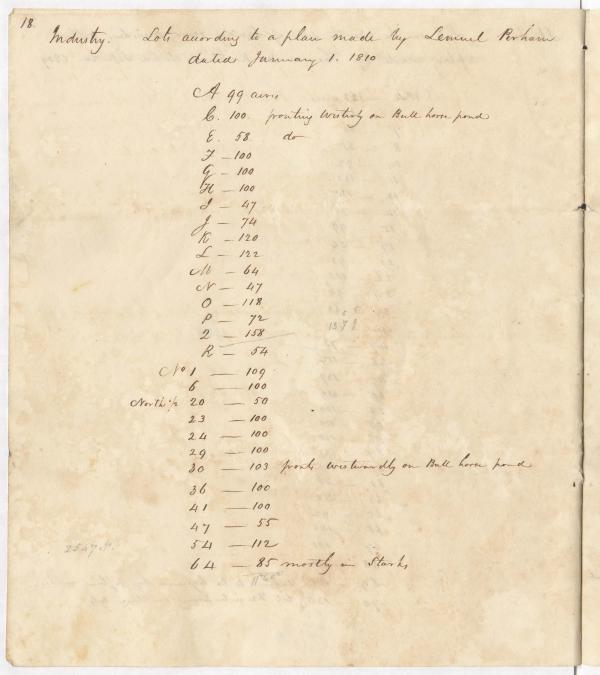 18.
Industry. Lots according to a plan made by Lemuel Perham
dated January 1. 1810
A 99 acres
C. 100. fronting Westerly on Bull horse pond
E. 58 do
F - 100
G - 100
H - 100
I - 47
J - 74
K - 120
L - 122
M - 64
N - 47
O - 118
P - 72
Q - 158
R - 54
No 1 - 109
6 - 100
North ½ 20 - 50
23 - 100
24 - 100
29 - 100
30 - 103 fronts westwardly on Bull horse pond
36 - 100
41 - 100
47 - 55
54 - 112
64 - 85 mostly in Starks